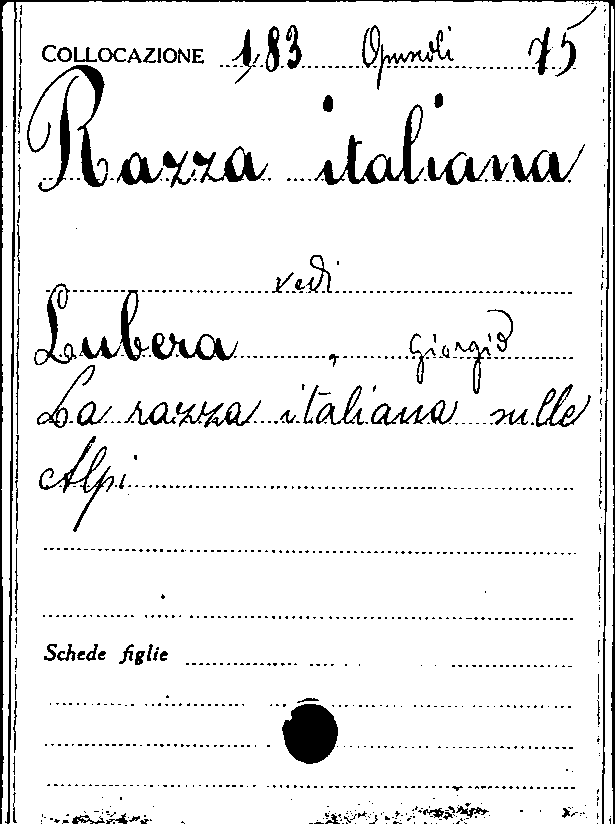 COLLOCAZIONE 1,83 Opuscoli 75
Razza italiana
vedi
Lubera, Giorgio
La razza italiana sulle
Alpi
Schede figlie